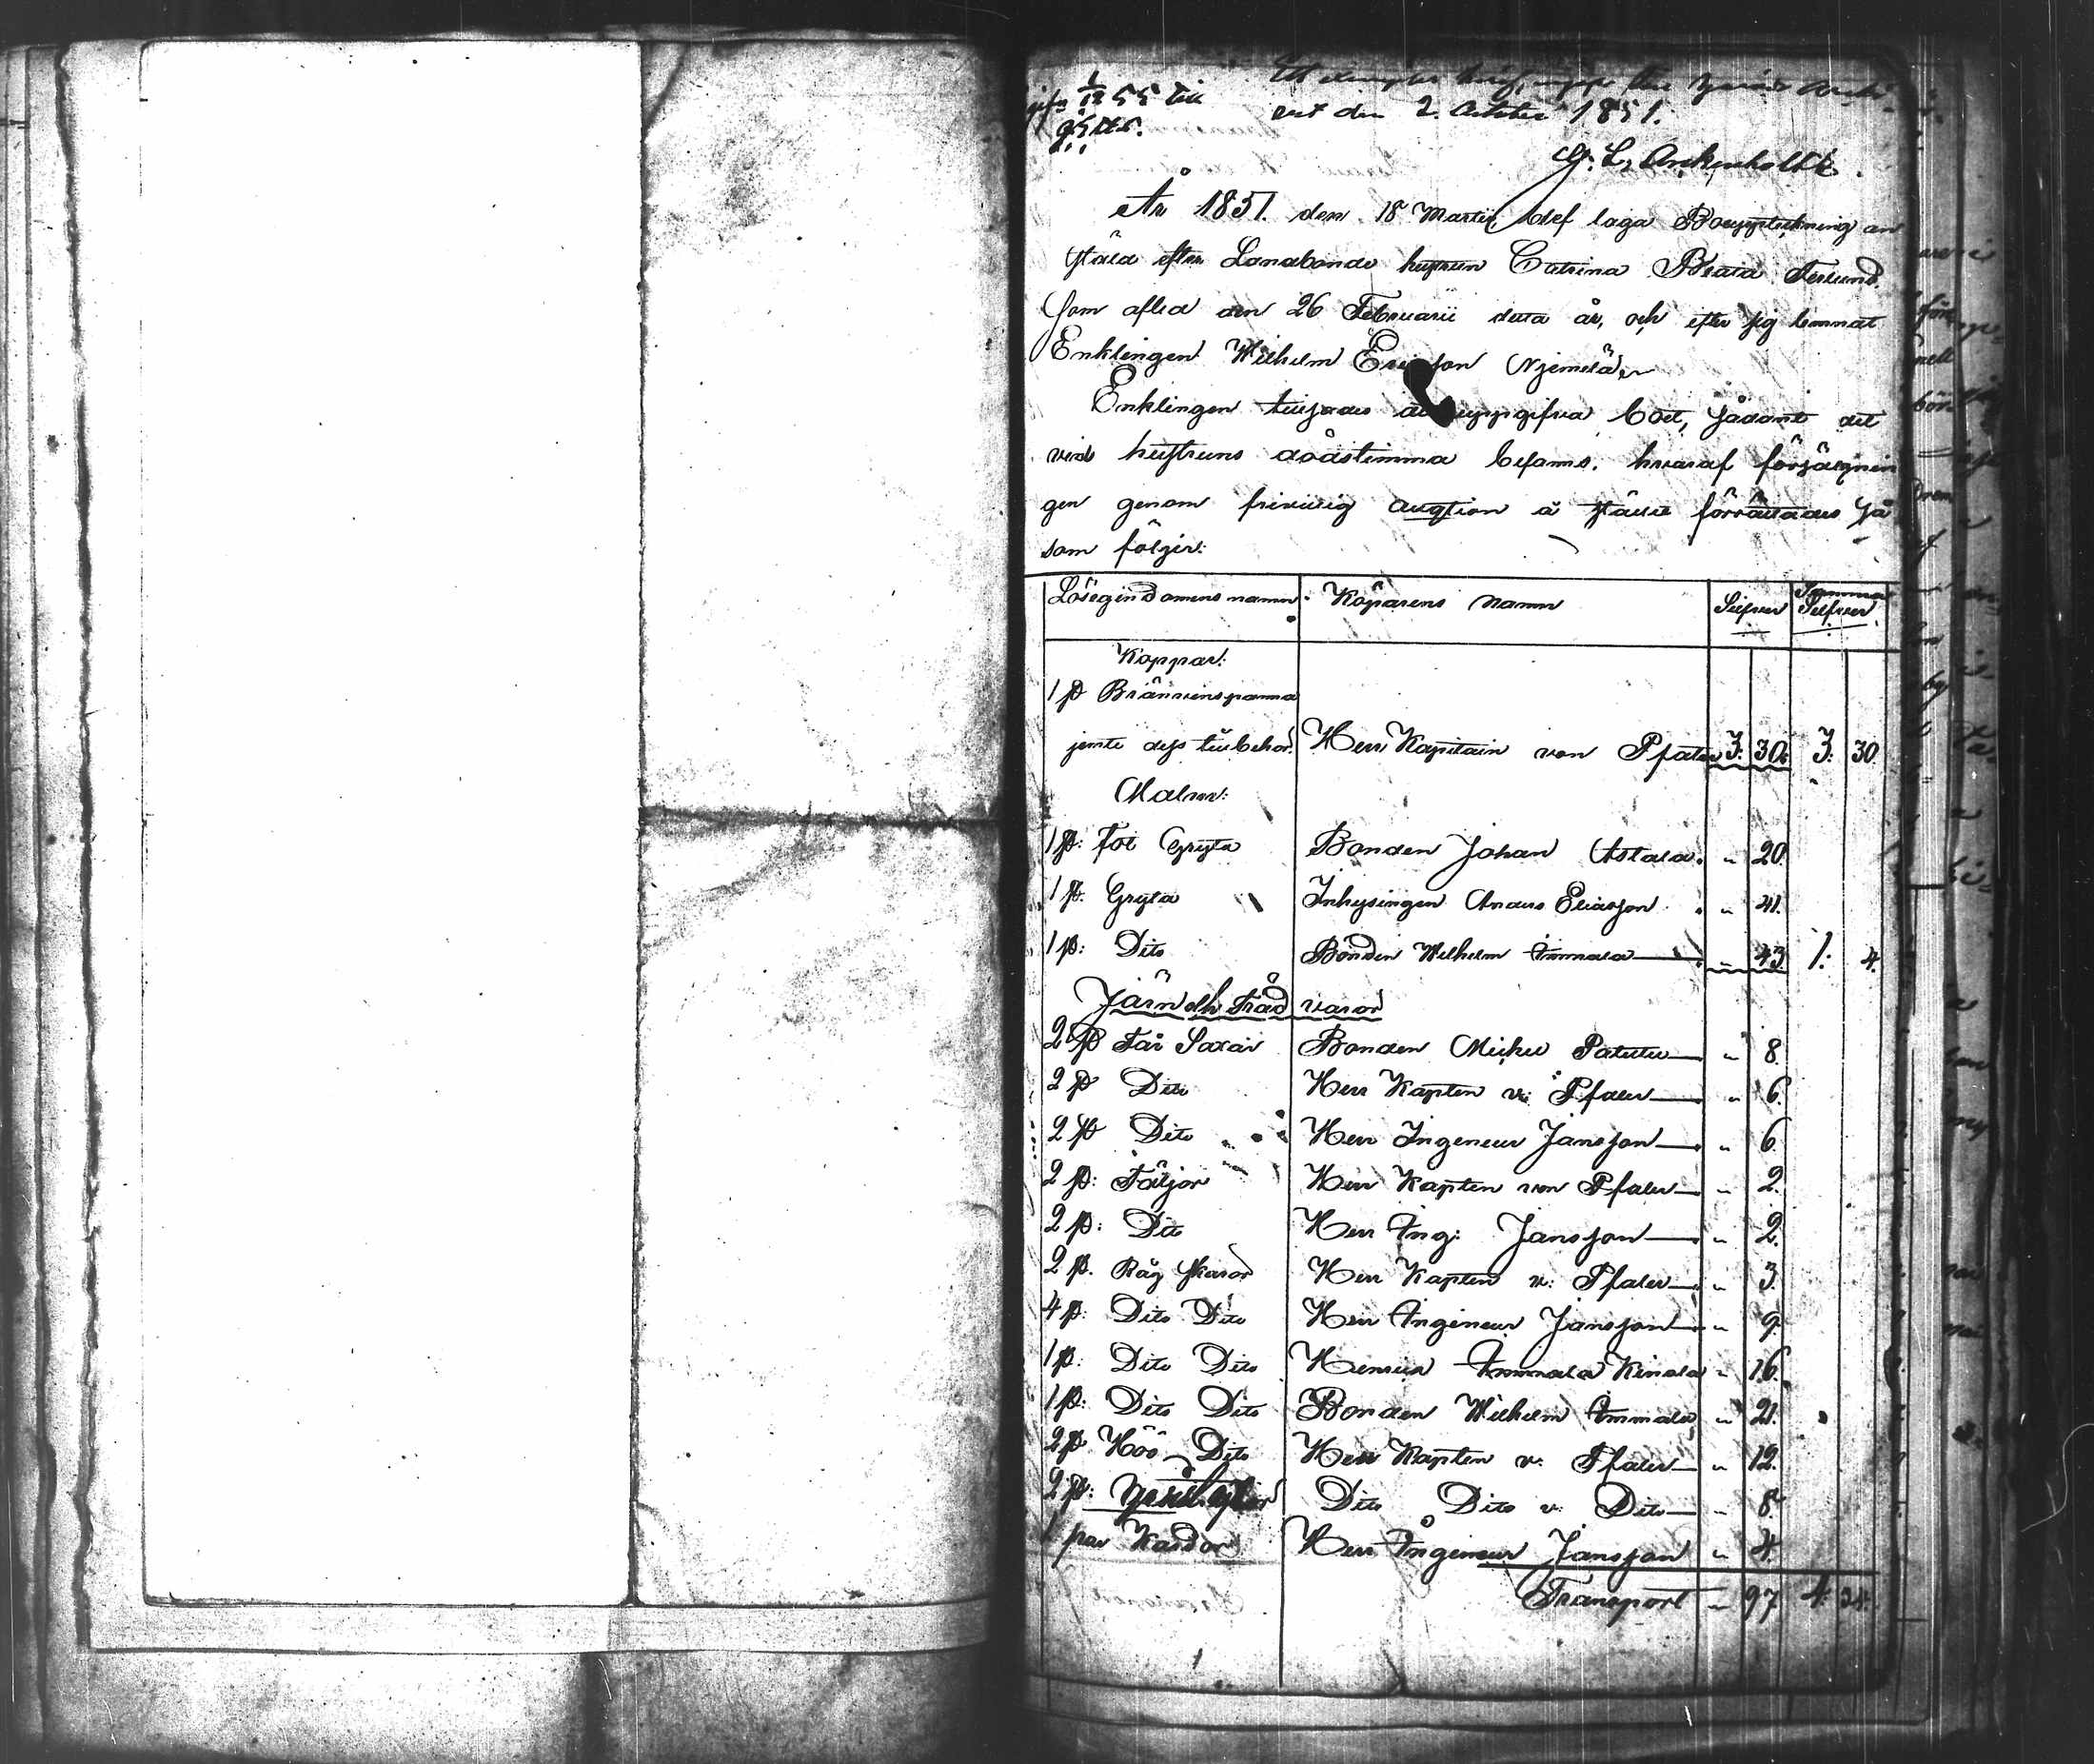 vet den 2. October 1851.
G. L. Arckenholtz.
År 1851. den 18 Martii, blef laga Bouppteckning an
stäld efter Landbonde hustrun Catrina Beata Terlund
som afled den 26 Februarii detta år, och efter sig lemnat
Enklingen Wilhelm Ericsson Njemelä
Enklingen tillsades at uppgifva boet, sådant det
vid hustruns dödstimma befanns. hvaraf försäljnin
gen genom frivillig auction å stället förrättades så
som följer:
Lösegindomens namn. Köparens Namn Silfver Summa Silfver
Koppar:
1 st Bränvinspanna
jemte dess tillbehör. Herr Kapitain von Pfaler 3. 30. 3. 30.
Malm:
1 st: fot Gryta Bonden Johan Astala. " 20.
1 st. Gryta Inhysingen Anders Eliasson " 41.
1 st: Dito Bonden Wilhelm Ammala " 43 1: 4.
Järn och Träd varor
2 st Får Saxar Bonden Michel " 8
2 st Dito Herr Kapten v: Pfaler " 6.
2 st Dito Herr Ingeneur Jansson " 6
2 st: Täljor Herr Kapten von Pfaler " 2.
2 st: Dito Herr Ing: Jansson " 2.
2 st. Råg skaror Herr Kapten v: Pfaler " 3.
4 st: Dito Dito Herr Ingeneur Jansson " 9.
1 st: Dito Dito Ammala " 16.
1 st: Dito Dito Bonden Wilhelm Ammala " 21.
2 st Höö Dito Herr Kapten v: Pfaler " 12.
2 st: Dito Dito v: Dito " 8.
1 par Kardor Herr Ingeneur Jansson " 4.
Transport " 97 4: 34.